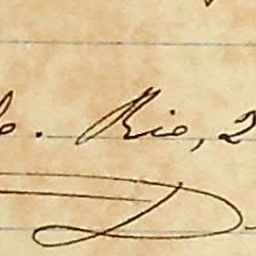 . Rio, 2